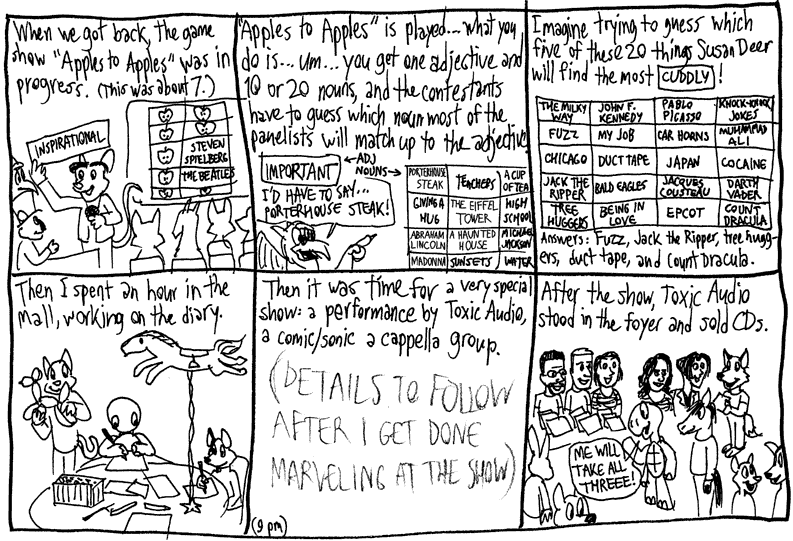 When we got back, the game
show "Apples to Apples" was in
progress. (This was about 7.)
INSPIRATIONAL
STEVEN
SPIELBERG
THE BEATLES
"Apples to Apples" is played... what you
do is... um... you get one adjective and
10 or 20 nouns, and the contestants
have to guess which noun most of the
panelists will match up to the adjective
IMPORTANT
←ADJ
NOUNS→
I'D HAVE TO SAY...
PORTERHOUSE STEAK!
PORTERHOUSE STEAK
TEACHERS
A CUP OF TEA
GIVING A HUG
THE EIFFEL TOWER
HIGH SCHOOL
ABRAHAM LINCOLN
A HAUNTED HOUSE
MICHAEL JACKSON
MADONNA
SUNSETS
WATER
Imagine trying to guess which
five of these 20 things Susan Deer
will find the most CUDDLY!
THE MILKY WAY
JOHN F. KENNEDY
PABLO PICASSO
KNOCK-KNOCK JOKES
FUZZ
MY JOB
CAR HORNS
MUHAMMAD ALI
CHICAGO
DUCT TAPE
JAPAN
COCAINE
JACK THE RIPPER
BALD EAGLES
JACQUES COUSTEAU
DARTH VADER
TREE HUGGERS
BEING IN LOVE
EPCOT
COUNT DRACULA
Answers: Fuzz, Jack the Ripper, tree hugg-
ers, duct tape, and Count Dracula.
Then I spent an hour in the
mall, working on the diary.
Then it was time for a very special
show: a performance by Toxic Audio,
a comic/sonic a cappella group.
(DETAILS TO FOLLOW
AFTER I GET DONE
MARVELING AT THE SHOW)
(9 pm)
After the show, Toxic Audio
stood in the foyer and sold CDs.
ME WILL
TAKE ALL
THREEE!